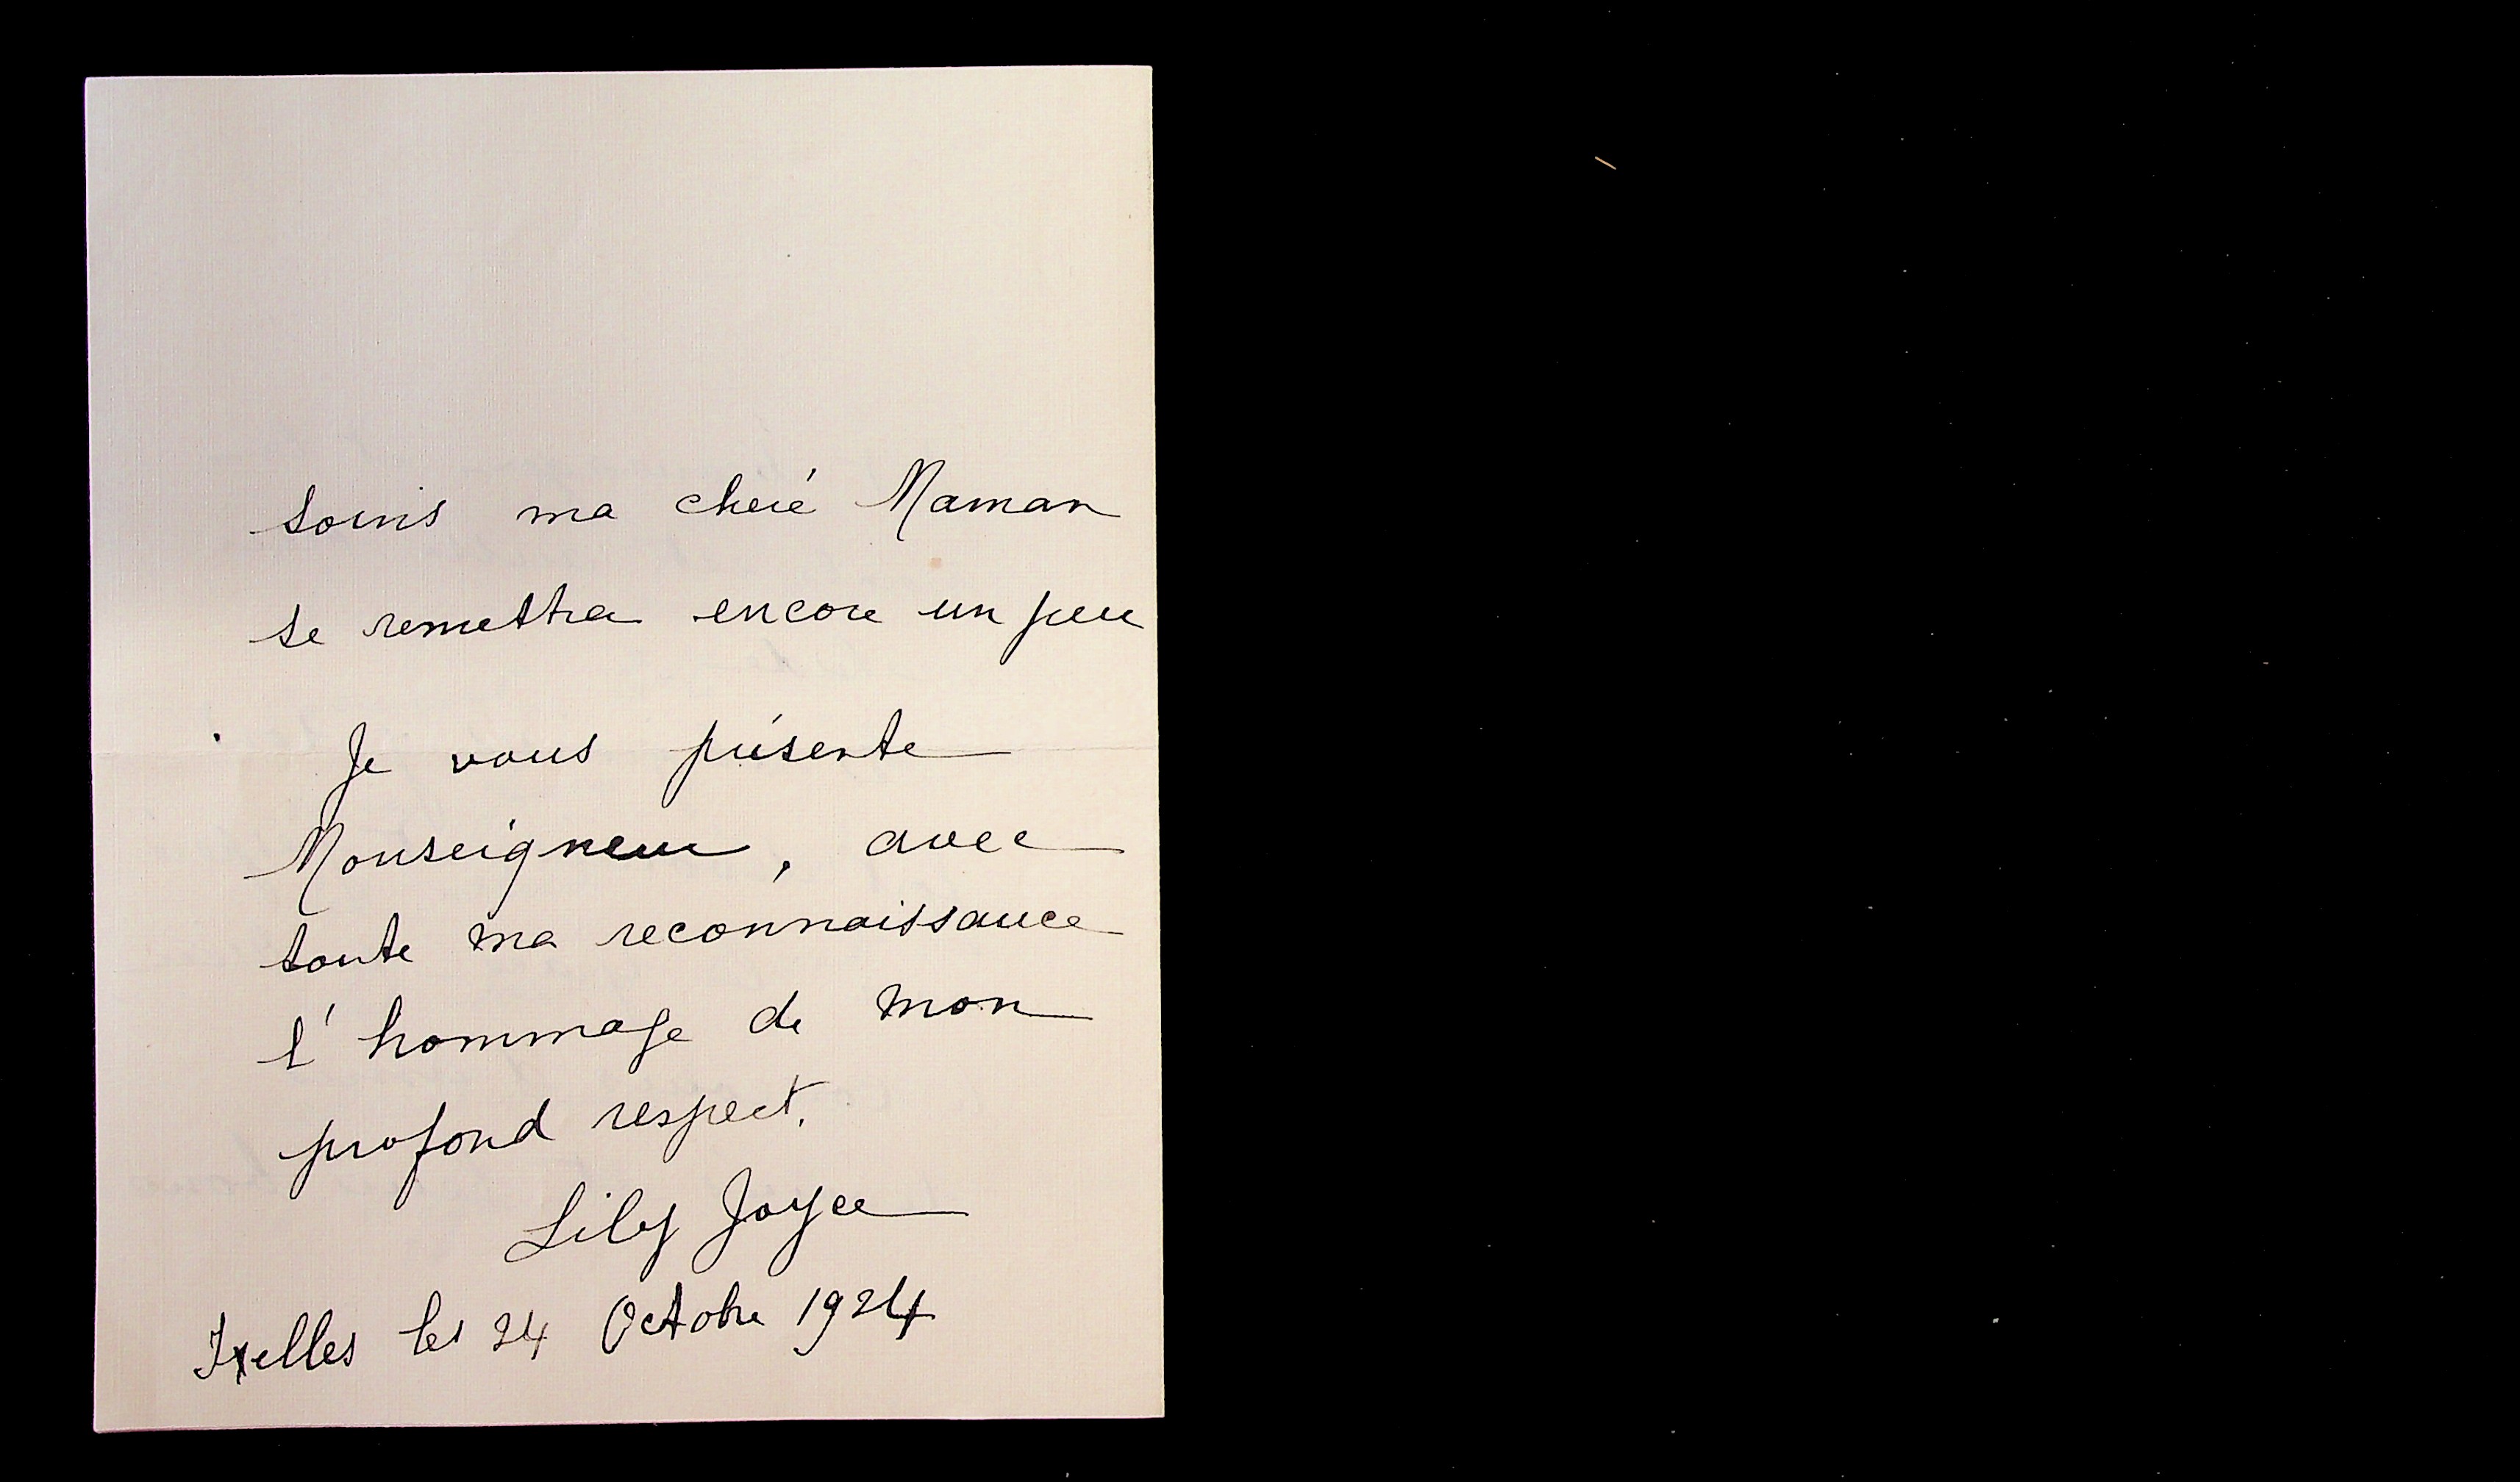 soins ma cheré Maman
se remettra encore un peu
Je vous présente
Monseigneur, avec
toute ma reconnaissance
l'hommage de mon
profond respect.
Lily Joyce
Ixelles les 24 Octobre 1924